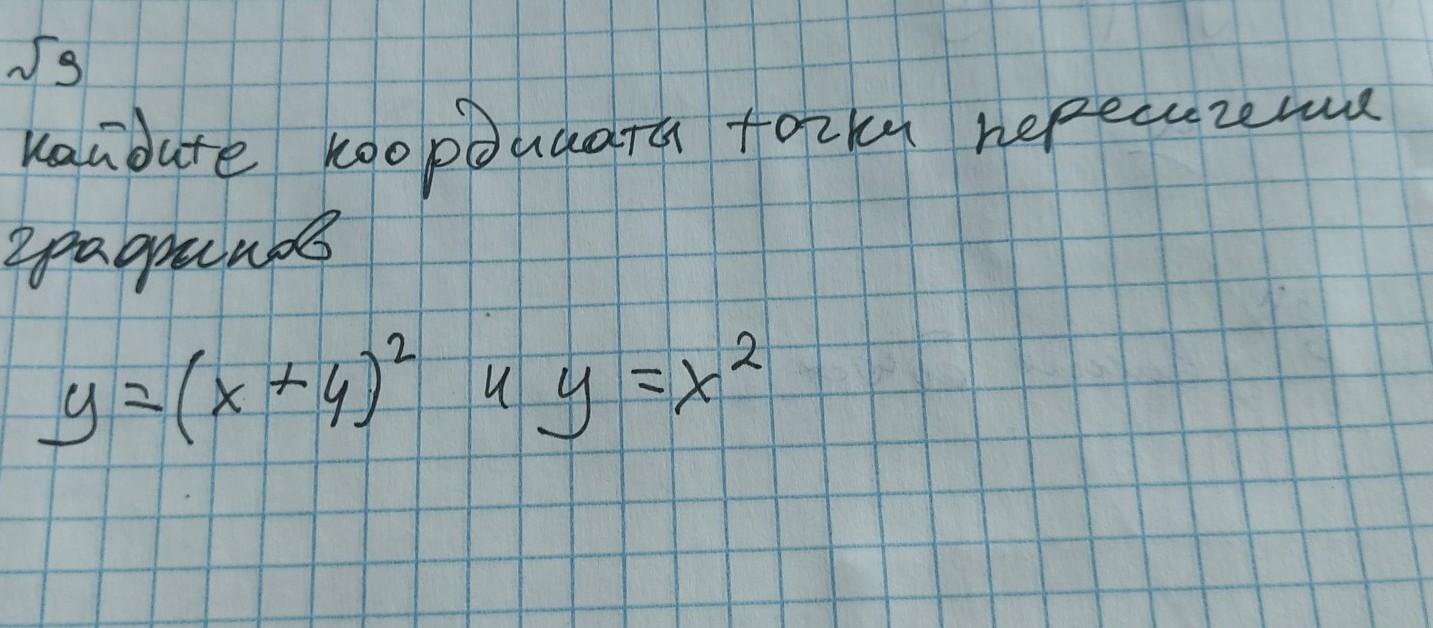 №9
найдите координаты точки пересичения
графиков
y = (x + 4)² и y = x²